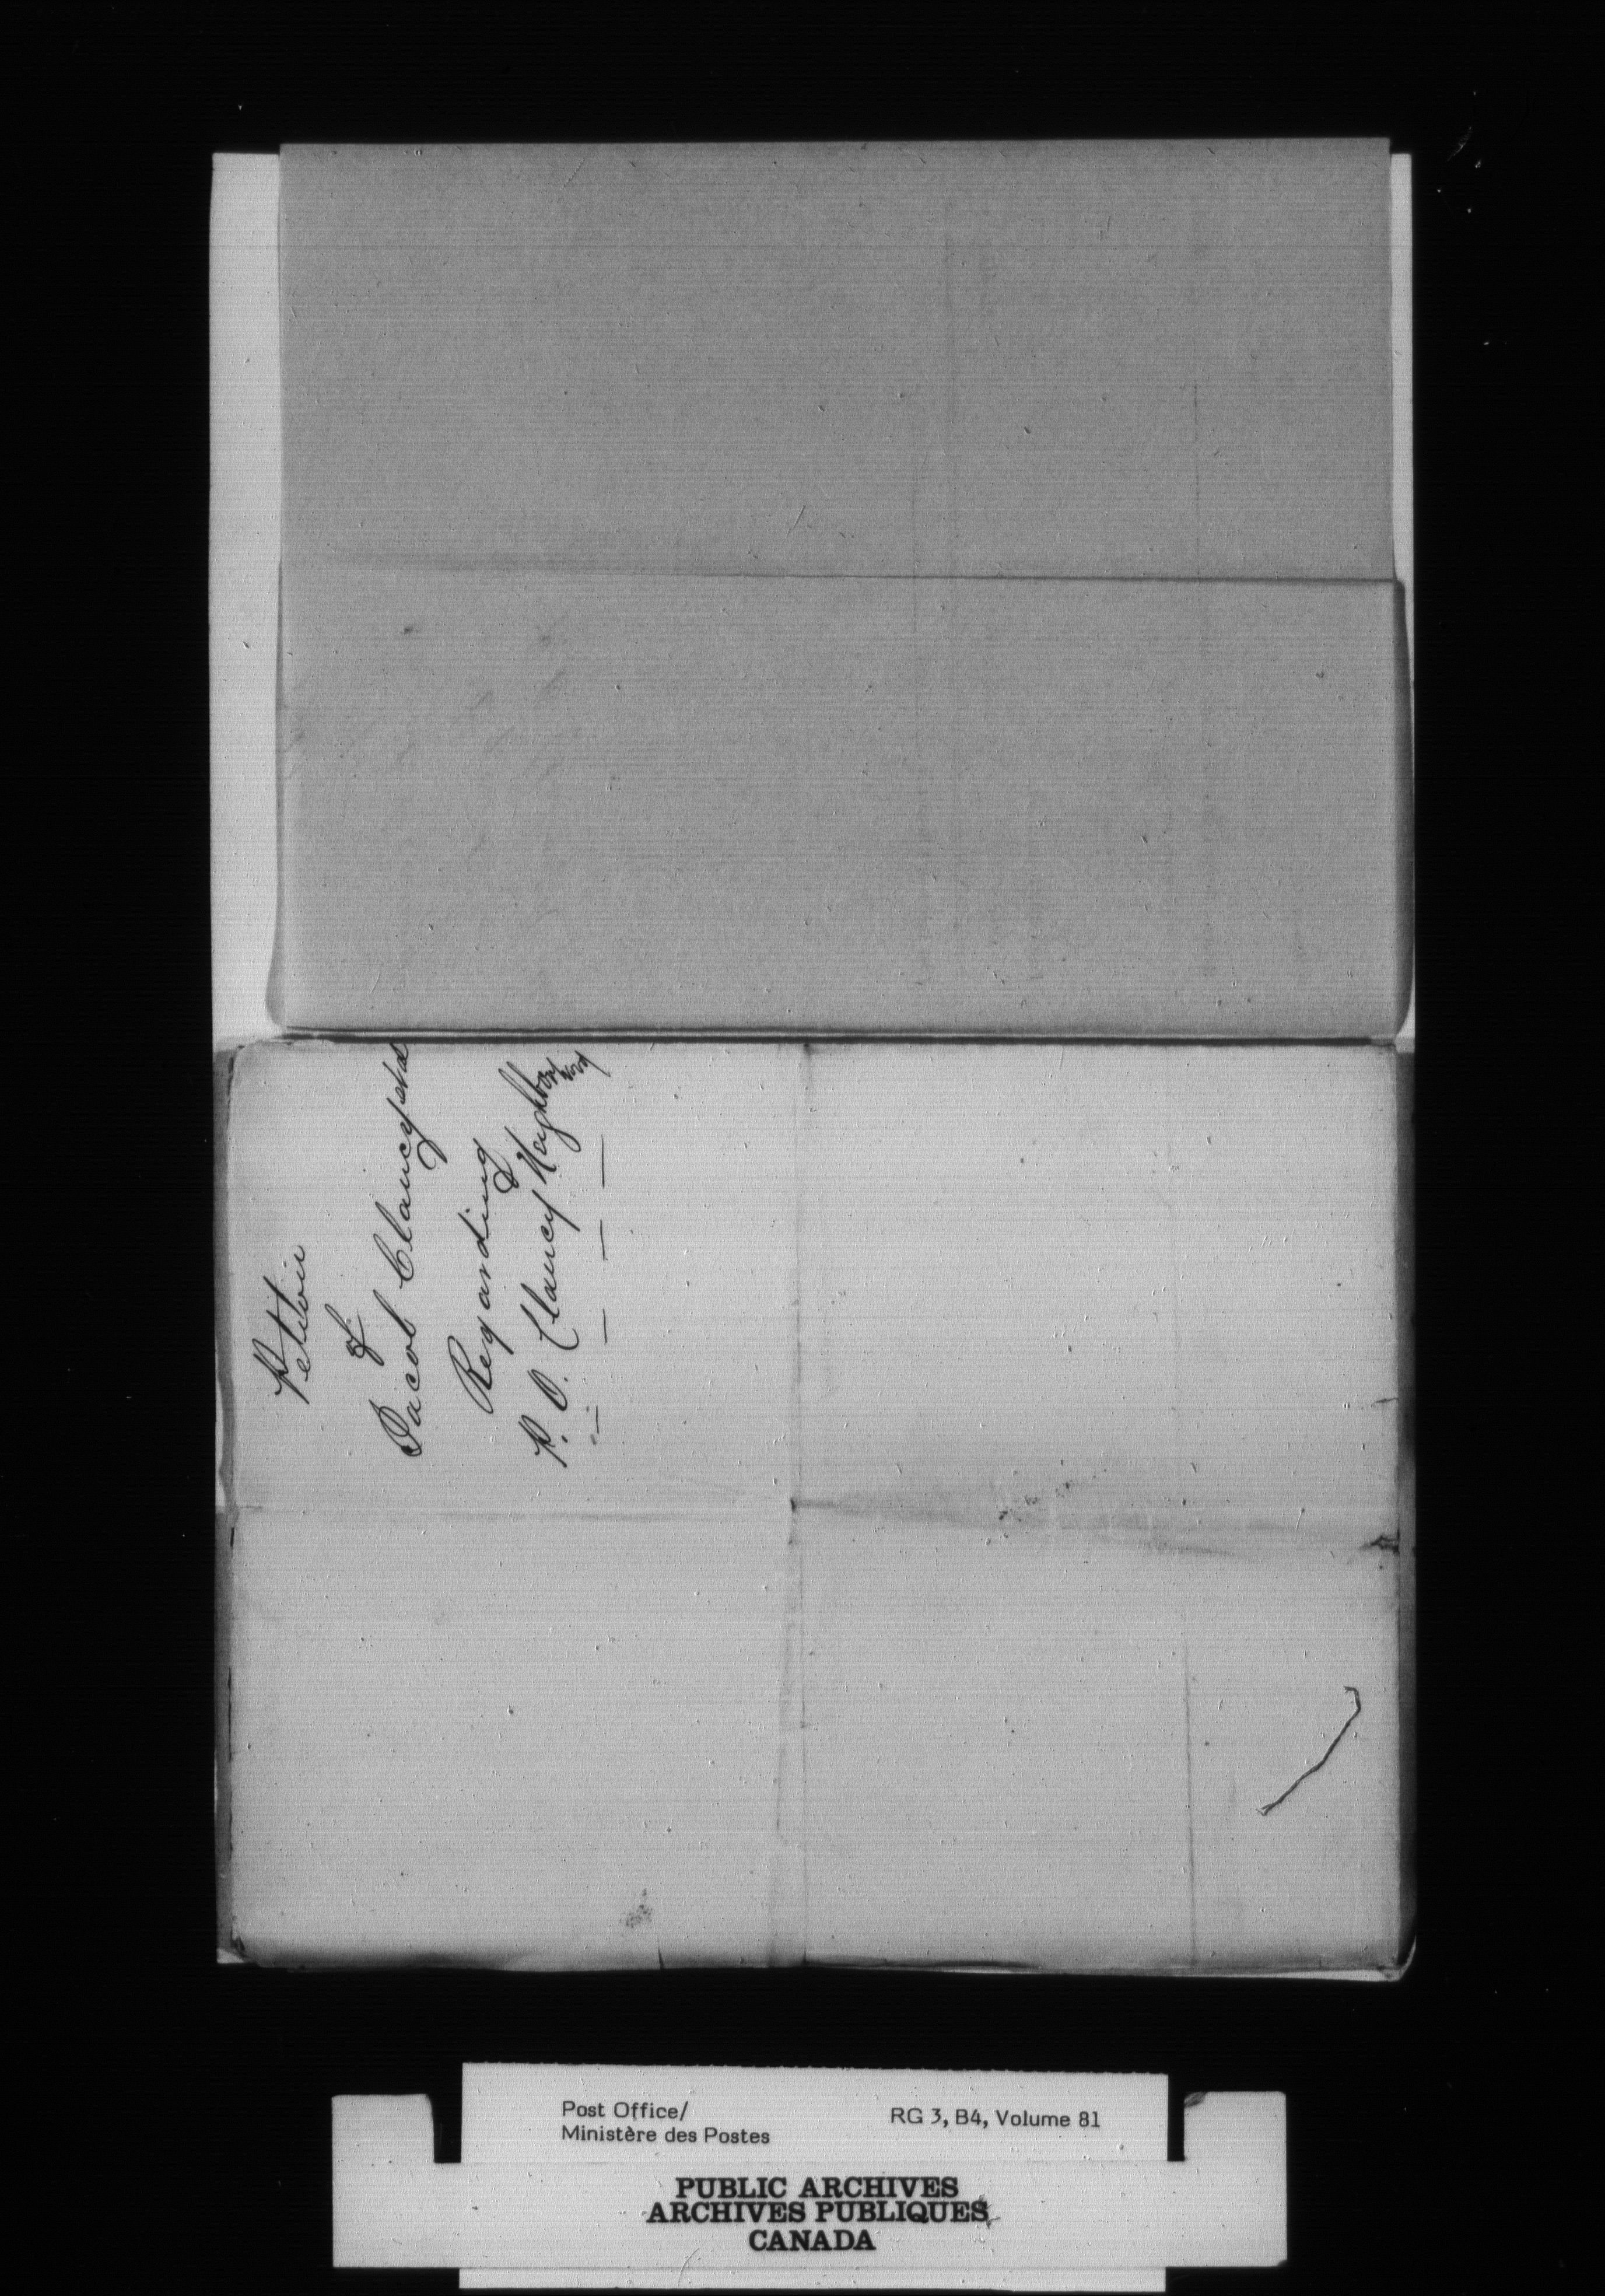 Petition
of
Jacob Clancy and
Regarding
P. O. Clancy Neighbor
Post Office/
Ministère des Postes
RG 3, B4, Volume 81
PUBLIC ARCHIVES
ARCHIVES PUBLIQUES
CANADA